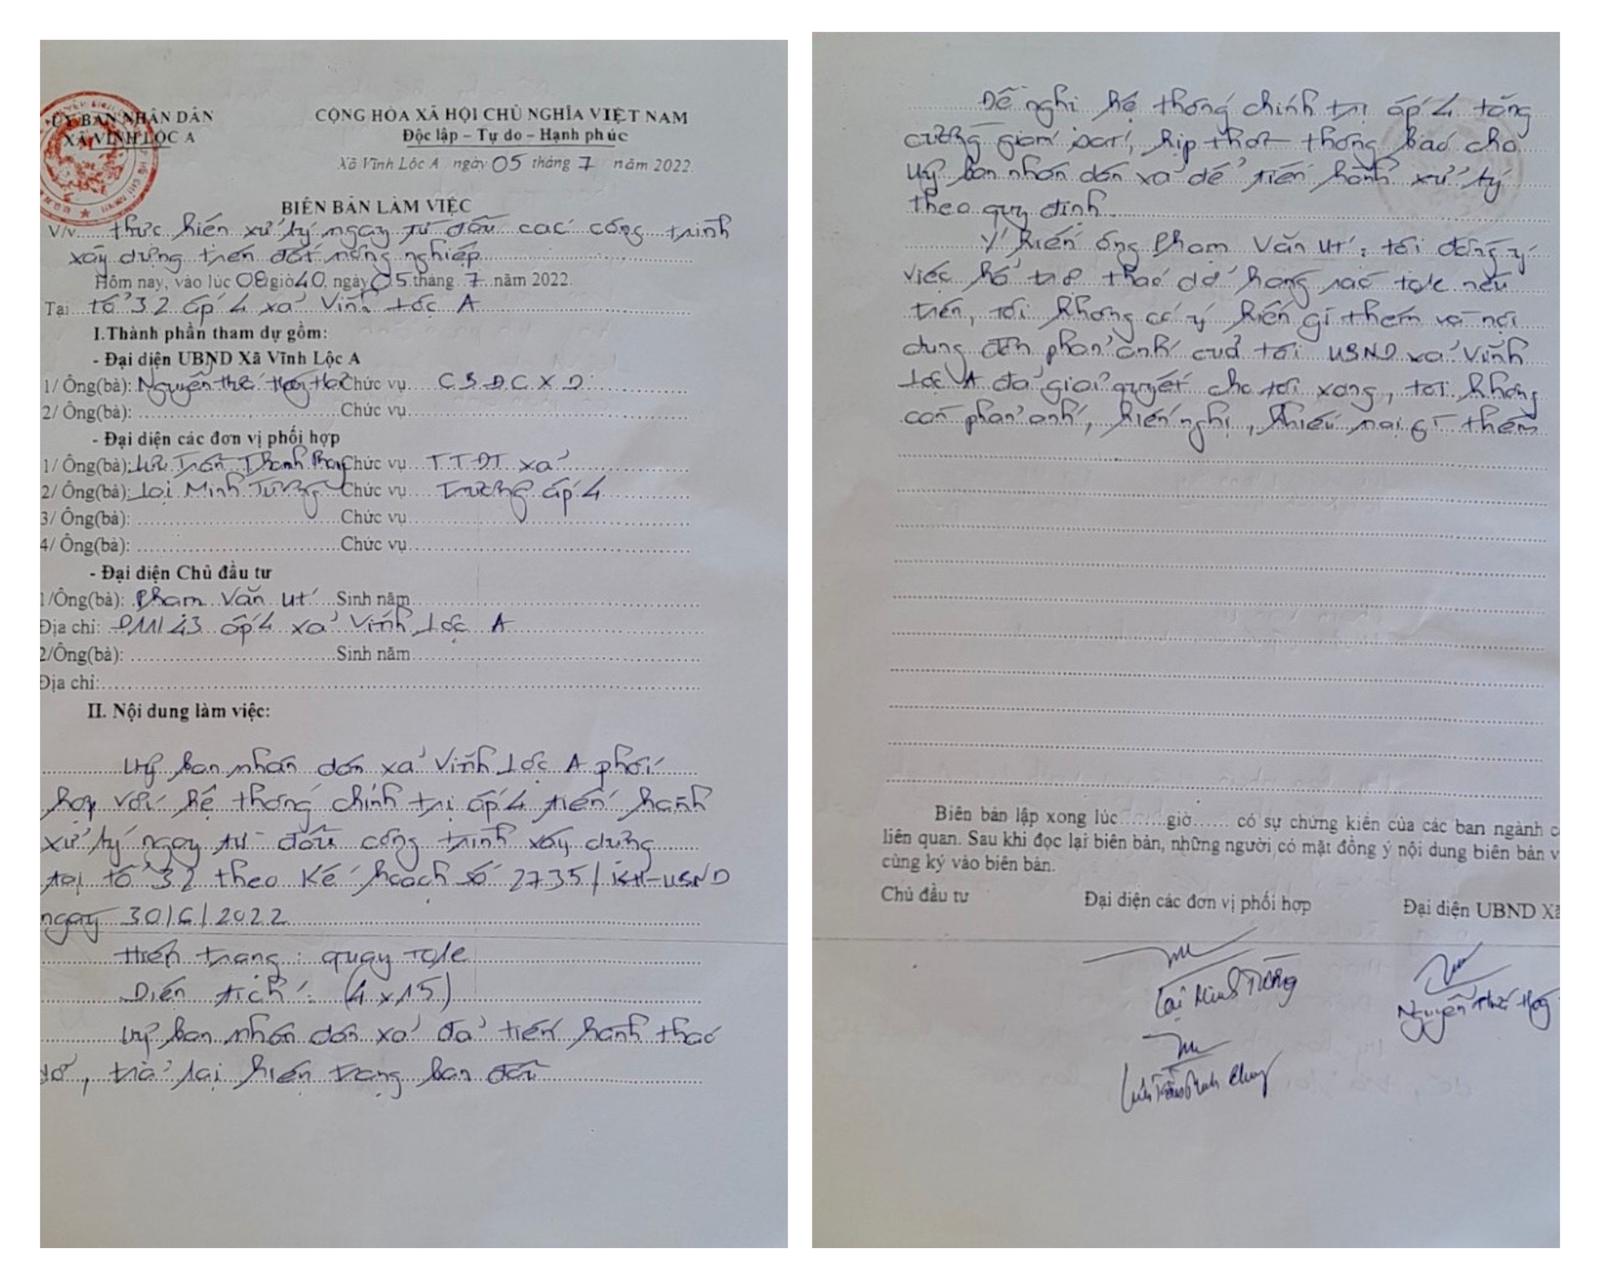 ỦY BAN NHÂN DÂN
XÃ VĨNH LỘC A
CỘNG HÒA XÃ HỘI CHỦ NGHĨA VIỆT NAM
Độc lập – Tự do – Hạnh phúc
Xã Vĩnh Lộc A ngày 05 tháng 7 năm 2022.
BIÊN BẢN LÀM VIỆC
V/v thực hiện xử lý ngay từ đầu các công trình
xây dựng trên đất nông nghiệp
Hôm nay, vào lúc 08 giờ 40, ngày 05 tháng 7 năm 2022.
Tại tổ 32 ấp 4 xã Vĩnh Lộc A
I. Thành phần tham dự gồm:
- Đại diện UBND Xã Vĩnh Lộc A
1/ Ông(bà): Nguyễn Chức vụ CBĐCXD
2/ Ông(bà): Chức vụ
- Đại diện các đơn vị phối hợp
1/ Ông(bà): Lưu Trần Thanh Chức vụ TTĐT xã
2/ Ông(bà): Lại Minh Tường Chức vụ Trưởng ấp 4
3/ Ông(bà): Chức vụ
4/ Ông(bà): Chức vụ
- Đại diện Chủ đầu tư
1/Ông(bà): Phạm Văn Út Sinh năm
Địa chỉ: D11/43 ấp 4 xã Vĩnh Lộc A
2/Ông(bà): Sinh năm
Địa chỉ:
II. Nội dung làm việc:
Uỷ ban nhân dân xã Vĩnh Lộc A phối
hợp với hệ thống chính trị ấp 4 tiến hành
xử lý ngay từ đầu công trình xây dựng
tại tổ 32 theo Kế hoạch số 2735/KH-UBND
ngày 30/6/2022
Hiện trạng: quay Tole
Diện tích: (4 x 15)
Uỷ ban nhân dân xã đã tiến hành tháo
dỡ, trả lại hiện trạng ban đầu
Đề nghị hệ thống chính trị ấp 4 tăng
cường giám sát, kịp thời thông báo cho
Uỷ ban nhân dân xã để tiến hành xử lý
theo quy định.
Ý kiến ông Phạm Văn Út: tôi đồng ý
việc hỗ trợ tháo dỡ hàng rào tole nêu
trên, tôi không có ý kiến gì thêm và nội
dung đơn phản ánh của tôi UBND xã Vĩnh
Lộc A đã giải quyết cho tôi xong, tôi không
còn phản ánh, kiến nghị, khiếu nại gì thêm
Biên bản lập xong lúc giờ có sự chứng kiến của các ban ngành c
liên quan. Sau khi đọc lại biên bản, những người có mặt đồng ý nội dung biên bản v
cùng ký vào biên bản.
Chủ đầu tư Đại diện các đơn vị phối hợp Đại diện UBND Xã
Lại Minh Tường
Nguyễn
Lưu Trần Thanh